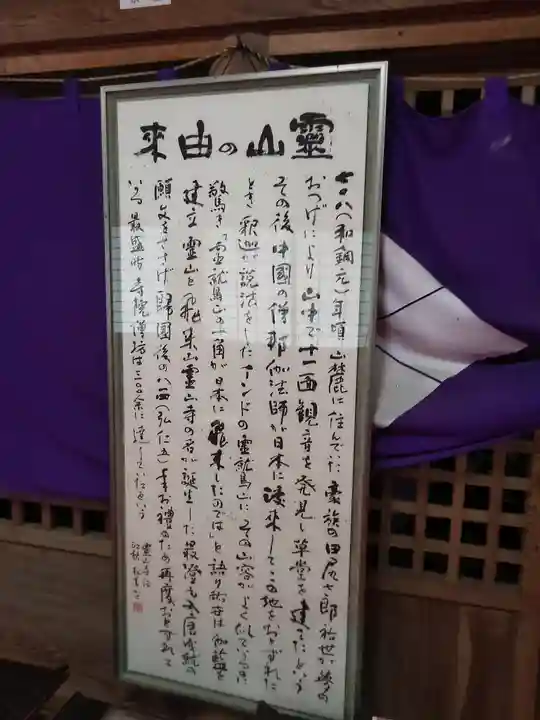 靈山の由来
七〇八(和銅元)年頃 山麓に住んでいた 豪族の田尻七郎 が夢の
おつげにより山中で十一面観音を発見し草堂を建てたという
その後中国の僧那伽法師が日本に渡来してこの地をおとずれた
とき 釈迦が説法をしたインドの霊鷲山に その山容がよく似ているのに
驚き「 霊鷲山の一角が日本に飛来したのでは」と語り は伽藍を
建立 霊山を飛来山霊山寺の名が誕生した 最澄も入唐 の
願文をささげ 帰国後の八一四(弘仁五)年お禮のため再度おとずれて
いる 最盛時 寺院僧坊は三〇〇余に達していたという